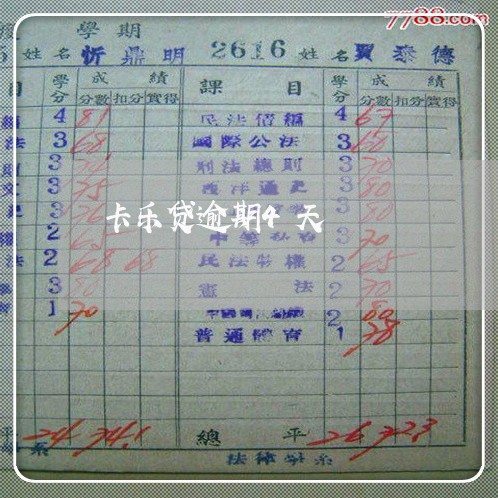 7788.com
學期
姓名 忻鼎明 2616 姓名 賈泰德
目 學分 成績 課目 學分 成績
分數 扣分 實得 分數 扣分 實得
4 81 民法債編 4 67
法 3 68 國際公法 3 60
3 刑法總則 3 70
3 75 西洋通史 3 80
3 3 80
卡乐贷逾期4 天
2 3 70
法 2 68 68 民法物權 2 65
3 80 憲法 2 70
育 1 70 2 80
普通體育 1 78
平 24 74.1 總平 26 72.3
系 法律學系